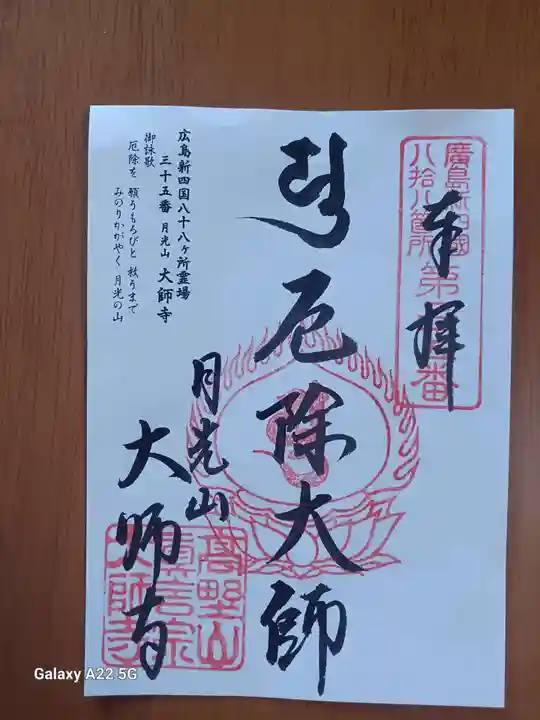 奉拝
廣島新四國
八拾八箇所
第
番
厄除大師
月光山
大師寺
高野山
真言宗
大師寺
広島新四国八十八ヶ所霊場
三十五番 月光山 大師寺
御詠歌
厄除を 願うもろびと 救うまで
みのりかがやく 月光の山
Galaxy A22 5G